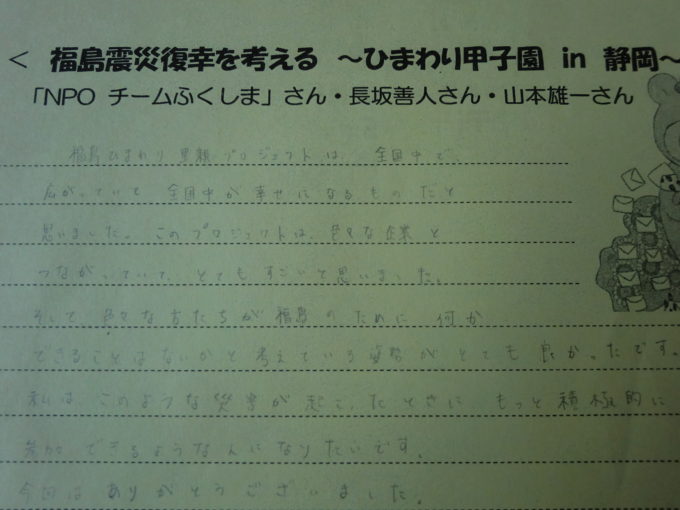 ＜ 福島震災復幸を考える ～ひまわり甲子園 in 静岡～
「NPO チームふくしま」さん・長坂善人さん・山本雄一さん
福島ひまわり里親プロジェクトは、全国中で、
広がっていて全国中が幸せになるものだと
思いました。このプロジェクトは、色々な企業と
つながっていて、とてもすごいと思いました。
そして、色々な方たちが福島のために何か
できることはないかと考えている姿勢が、とても良かったです。
私は、このような災害が起こったときに もっと積極的に
参加できるような人になりたいです。
今回はありがとうございました。